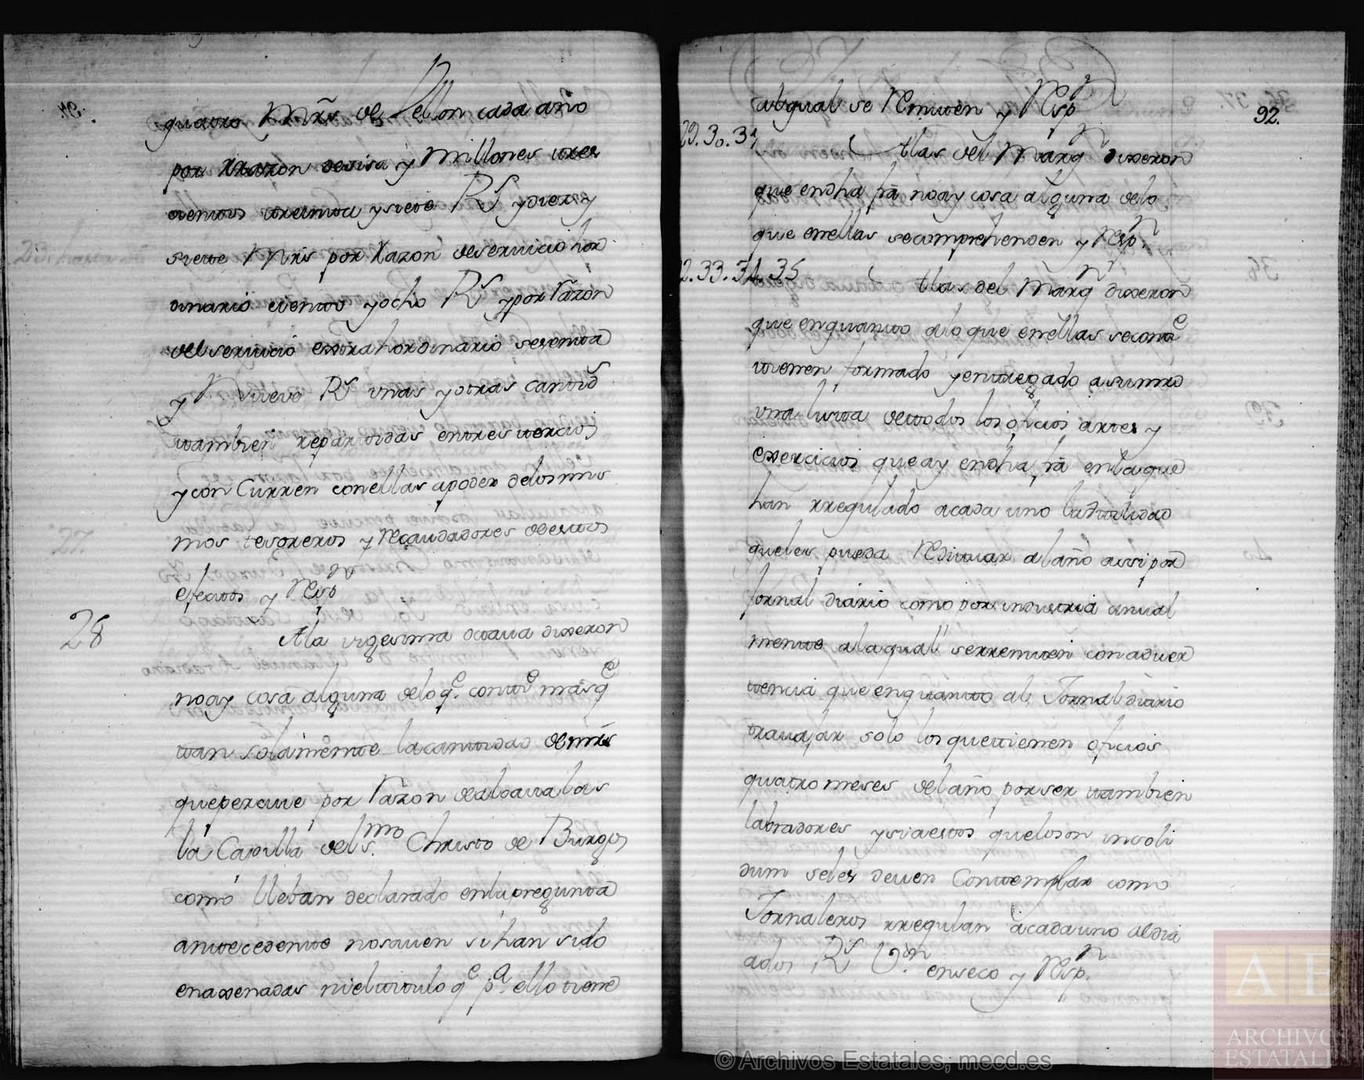 quatro Mrs. de Vellon cada año
por Rrazon de sisa y Millones tres
cientos treinta y siete Rs. y diez y
siete Mrs por Razon de servicio hor
dinario ciento y ocho Rs. y por Razon
del servicio extrahordinario setenta
y Nueve Rs. unas y otras cantids
tambien repartidas entres tercios
y con Curren con ellas a poder de los mis
mos tesoreros y Recaudadores de estos
efectos y Respn
28
Ala vigesima octava dixeron
no ay cosa alguna de lo q.e contie mas q.e
tan solamente la cantidad de mrs
que percive por Razon de alcavalas
la Capilla del s.mo Christo de Burgos
como lleban declarado en la pregunta
antecedente no saven si han sido
enaxenadas ni el titulo q.e p.a ello tiene
92.
al qual se Remiten y Respn
29.30.31
Alas del Margn dixeron
que en dha va no ay cosa alguna de lo
que en ellas se comprehenden y Respn
32.33.34.35
Alas del Margn dixeron
que en quanto alo que en ellas se conte
tienen formado y entregado a su mrd
una lista de todos los oficios artes y
exercicios que ay en dha va en la que
han rregulado a cada uno la utilidad
que les pueda Redituar al año assi por
jornal diario como por industria anual
mente a la qual se rremiten con adver
tencia que en quanto al Jornal diario
travajar solo los que tienen oficios
quatro meses del año por ser tambien
labradores y si a estos que lo son insoli
dum se les deven Contemplar como
Jornaleros rregulan a cada uno al dia
a dos Rs Von en seco y Respn
© Archivos Estatales, mecd.es
AE
ARCHIVOS
ESTATALES